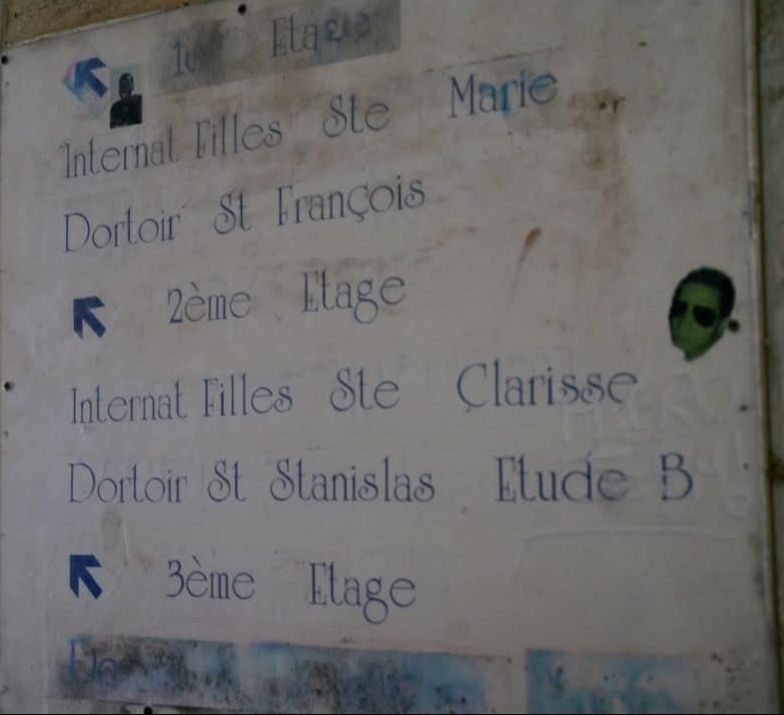 1er Etage
Internat Filles Ste Marie
Dortoir St François
2ème Etage
Internat Filles Ste Clarisse
Dortoir St Stanislas Etude B
3ème Etage